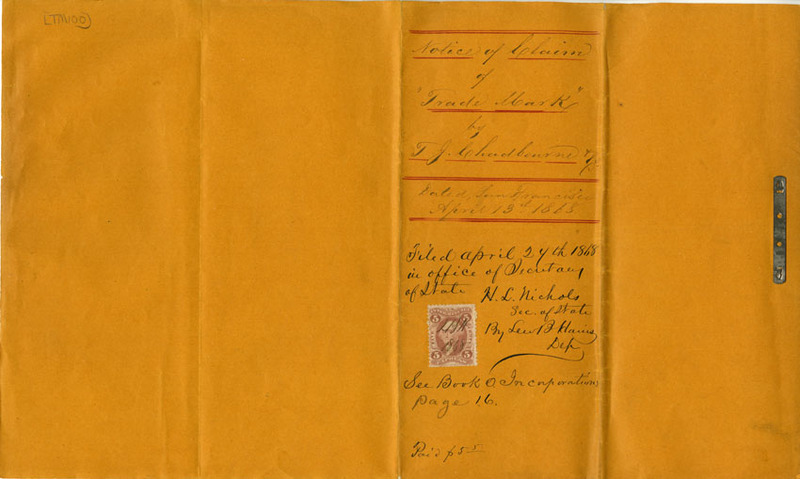 [TM100]
Notice of Claim
of
"Trade Mark"
by
T. J. Chadbourne & Co
Dated, San Francisco
April 13th 1868
Filed April 27th 1868
in office of Secretary
of State H. L. Nichols
Sec. of State
By Lew B. Harris
Dep
5 5
5 5
See Book O Incorporations
page 16.
Paid $5